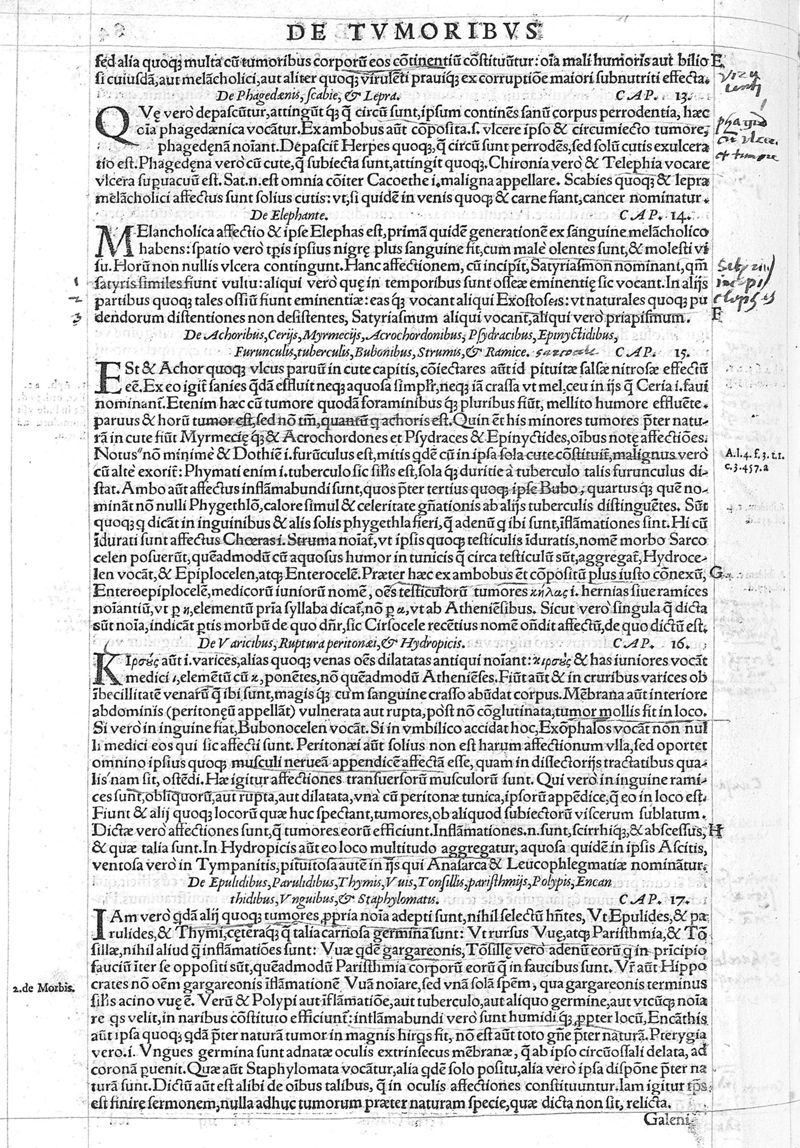 DE TVMORIBVS
sed alia quoq; multa cũ tumoribus corporũ eos cõtinentiũ cõstituũtur: oĩa mali humoris aut bilio E
si cuiusdã, aut melãcholici, aut aliter quoq; virulẽti prauiq; ex corruptiõe maiori subnutriti effecta.
De Phagedænis, scabie, & Lepra. CAP. 13.
QVę verò depascũtur, attingũt q̃ circũ sunt, ipsum continẽs sanũ corpus perrodentia, hæc
oĩa phagedænica vocãtur. Ex ambobus aũt cõposita .s. vlcere ipso & circumiecto tumore,
phagedẽnã noĩant. Depascit̃ Herpes quoq;, q̃ circũ sunt perrodẽs, sed solũ cutis exulcera
tio est. Phagedẹna verò cũ cute, q̃ subiecta sunt, attingit quoq;. Chironia verò & Telephia vocare
vlcera supuacuũ est. Sat .n. est omnia cõiter Cacoethe i. maligna appellare. Scabies quoq; & lepra
melãcholici affectus sunt solius cutis: vt, si quidẽ in venis quoq; & carne fiant, cancer nominatur.
De Elephante. CAP. 14.
MElancholica affectio & ipse Elephas est, primã quidẽ generationẽ ex sanguine melãcholico
habens: spatio verò tp̃is ipsius nigrę plus sanguine fit, cum male olentes sunt, & molesti vi
su. Horũ non nullis vlcera contingunt. Hanc affectionem, cũ incipit, Satyriasmon nominant, qm̃
satyris similes fiunt vultu: aliqui verò quę in temporibus sunt osseæ eminentię sic vocant. In alijs
partibus quoq; tales ossiũ fiunt eminentiæ: eas q̃ vocant aliqui Exostoses: vt naturales quoq; pu
dendorum distentiones non desistentes, Satyriasmum aliqui vocant, aliqui verò priapismum. F
De Achoribus, Cerijs, Myrmecijs, Acrochordonibus, Psydracibus, Epinyctidibus,
Furunculus, tuberculus, Bubonibus, Strumis, & Ramice. CAP. 15.
ESt & Achor quoq; vlcus paruũ in cute capitis, cõiectares aũt id pituitæ salsæ nitrosæ effectũ
eẽ. Ex eo igit̃ sanies q̃dã effluit neq; aquosa simplr̃, neq; iã crassa vt mel, ceu in ijs q̃ Ceria i. faui
nominant̃. Etenim hæc cũ tumore quodã foraminibus q̃; pluribus fiũt, mellito humore effluẽte.
paruus & horũ tumor est, sed nõ tm̃, quantũ q̃ achoris est. Quin ẽt his minores tumores p̃ter natu-
rã in cute fiũt Myrmecię q̃; & Acrochordones et Psydraces & Epinyctides, oĩbus notę affectiões.
Notus nõ minimè & Dothiẽ i. furũculus est, mitis q̃dẽ cũ in ipsa sola cute cõstituit̃, malignus verò
cũ altè exorit̃: Phymati enim i. tuberculo sic sil̃is est, sola q̃; duritie à tuberculo talis furunculus di-
stat. Ambo aũt affectus inflãmabundi sunt, quos p̃ter tertius quoq; ipse Bubo, quartus q̃; quẽ no-
minãt nõ nulli Phygethlõ, calore simul & celeritate gñationis ab alijs tuberculis distinguẽtes. Sũt
quoq; q dicãt in inguinibus & alis solis phygethla fieri, q̃ adenũ q ibi sunt, ĩflamationes sint. Hi cũ
ĩdurati sunt affectus Chœras i. Struma noĩat̃, vt ipsis quoq; testiculis ĩduratis, nomẽ morbo Sarco
celen posuerũt, quẽadmodũ cũ aquosus humor in tunicis q̃ circa testiculũ sũt, aggregat̃, Hydroce-
len vocãt, & Epiplocelen, atq; Enterocelẽ. Præter hæc ex ambobus ẽt cõpositũ plus iusto cõnexũ, G
Enteroepiplocelẽ, medicorũ iuniorũ nomẽ, oẽs testiculorũ tumores κήλας i. hernias siue ramices
noĩantiũ, vt p η, elementũ pria syllaba dicat̃, nõ p α, vt ab Atheniẽsibus. Sicut verò singula q̃ dicta
sũt noĩa, indicãt p̃tis morbũ de quo dñr, sic Cirsocele recẽtius nomẽ oñdit affectũ, de quo dictũ est.
De Varicibus, Ruptura peritonæi, & Hydropicis. CAP. 16.
KIρσοὺς aũt i. varices, alias quoq; venas oẽs dilatatas antiqui noĩant: κιρσοὺς & has iuniores vocãt
medici ι, elemẽtũ cũ κ, ponẽtes, nõ quẽadmodũ Atheniẽses. Fiũt aũt & in cruribus varices ob
ĩbecillitatẽ venarũ q̃ ibi sunt, magis q̃; cum sanguine crasso abũdat corpus. Mẽbrana aũt interiore
abdominis (peritonęũ appellãt) vulnerata aut rupta, põst nõ cõglutinata, tumor mollis fit in loco.
Si verò in inguine fiat, Bubonocelen vocãt. Si in vmbilico accidat hoc, Exõphalos vocãt non nul
li medici eos qui sic affecti sunt. Peritonæi aũt solius non est harum affectionum vlla, sed oportet
omnino ipsius quoq; musculi nerueã appendicẽ affectã esse, quam in dissectiorijs tractatibus qua-
lis nam sit, ostẽdi. Hæ igitur affectiones transuersorũ musculorũ sunt. Qui verò in inguine rami-
ces sunt, obliquorũ, aut rupta, aut dilatata, vnà cũ peritonæ tunica, ipsorũ appẽdice, q̃ eo in loco est.
Fiunt & alij quoq; locorũ quæ huc spectant, tumores, ob aliquod subiectorũ viscerum sublatum.
Dictæ verò affectiones sunt, q̃ tumores eorũ efficiunt. Inflãmationes .n. sunt, scirrhiq̃;, & abscessus, H
& quæ talia sunt. In Hydropicis aũt eo loco multitudo aggregatur, aquosa quidẽ in ipsis Ascitis,
ventosa verò in Tympanitis, pituitosa autẽ in ijs qui Anasarca & Leucophlegmatiæ nominãtur.
De Epulidibus, Parulidibus, Thymis, Vuis, Tonsillis, paristhmijs, Polypis, Encan
thidibus, Vnguibus, & Staphylomatis. CAP. 17.
IAm verò q̃dã alij quoq; tumores p̃pria noĩa adepti sunt, nihil selectũ hñtes, Vt Epulides, & pa
rulides, & Thymi, cęteraq; q̃ talia carniosa germina sunt: Vt rursus Vuę, atq; Paristhmia, & Tõ
sillæ, nihil aliud q̃ inflãmatiões sunt: Vuæ q̃dẽ gargareonis, Tõsillę verò adenũ eorũ q in prĩcipio
fauciũ ĩter se oppositi sũt, quẽadmodũ Paristhmia corporũ eorũ q̃ in faucibus sunt. Vr̃ aũt Hippo
2. de Morbis. crates nõ oẽm gargareonis ĩflamationẽ Vuã noĩare, sed vnã solã spẽm, qua gargareonis terminus
sil̃is acino vuę ẽ. Verũ & Polypi aut ĩflamatiõe, aut tuberculo, aut aliquo germine, aut vtcũq; noĩa
re qs velit, in naribus cõstituto efficiunt̃: inflamabundi verò sunt humidi q̃;, p̃pter locũ, Encãthis
aũt ipsa quoq; q̃dã p̃ter naturã tumor in magnis hirqs fit, nõ est aũt toto gñe p̃ter naturã. Pterygia
vero .i. Vngues germina sunt adnatæ oculis extrinsecus mẽbranæ, q̃ ab ipso circũossali delata, ad
coronã puenit. Quæ aũt Staphylomata vocãtur, alia q̃dẽ solo positu, alia verò ipsa dispõne p̃ter na
turã sunt. Dictũ aũt est alibi de oĩbus talibus, q̃ in oculis affectiones constituuntur. Iam igitur tp̃s
est finire sermonem, nulla adhuc tumorum præter naturam specie, quæ dicta non sit, relicta.
Galeni
A.l.4.f.3.t.1.
c.3.457.a
1
2
3